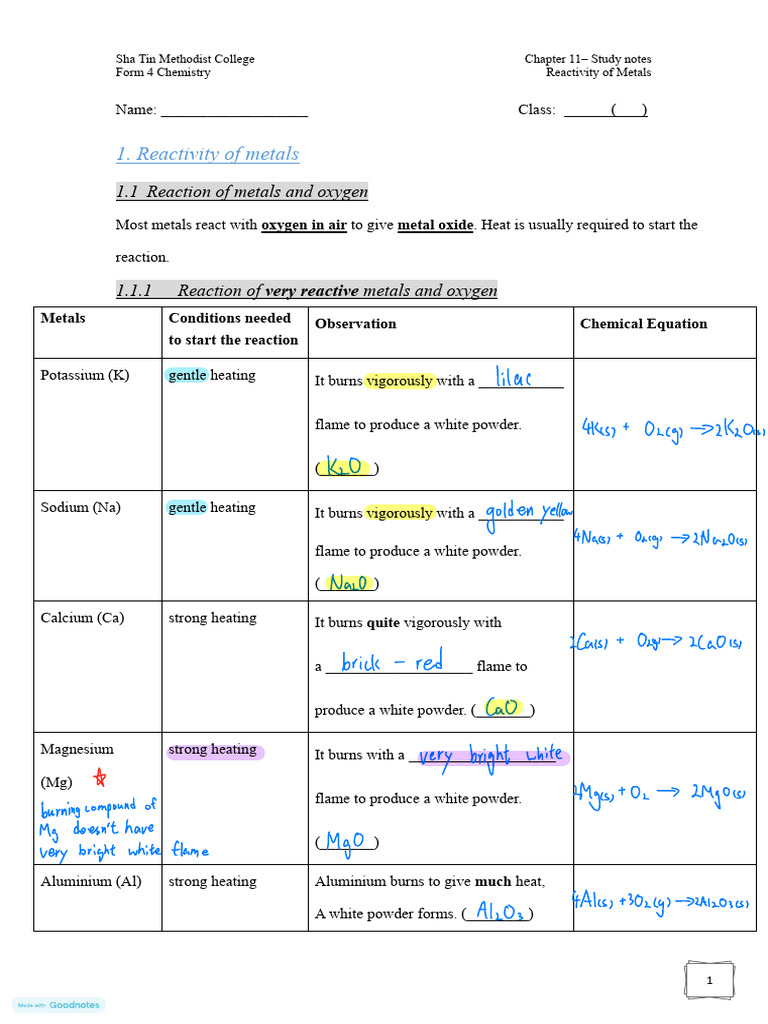 Sha Tin Methodist College Chapter 11– Study notes
Form 4 Chemistry Reactivity of Metals
Name: ___________________ Class: ______(___)
1. Reactivity of metals
1.1 Reaction of metals and oxygen
Most metals react with oxygen in air to give metal oxide. Heat is usually required to start the
reaction.
1.1.1 Reaction of very reactive metals and oxygen
Metals Conditions needed to start the reaction Observation Chemical Equation
Potassium (K) gentle heating It burns vigorously with a lilac
flame to produce a white powder.
(K₂O)
4K(s) + O₂(g) → 2K₂O(s)
Sodium (Na) gentle heating It burns vigorously with a golden yellow
flame to produce a white powder.
(Na₂O)
4Na(s) + O₂(g) → 2Na₂O(s)
Calcium (Ca) strong heating It burns quite vigorously with
a brick - red flame to
produce a white powder. (CaO)
2Ca(s) + O₂(g) → 2CaO(s)
Magnesium
(Mg)
burning compound of
Mg doesn't have
very bright white flame
strong heating It burns with a very bright white
flame to produce a white powder.
(MgO)
2Mg(s) + O₂ → 2MgO(s)
Aluminium (Al) strong heating Aluminium burns to give much heat,
A white powder forms. (Al₂O₃)
4Al(s) + 3O₂(g) → 2Al₂O₃(s)
1
Made with Goodnotes